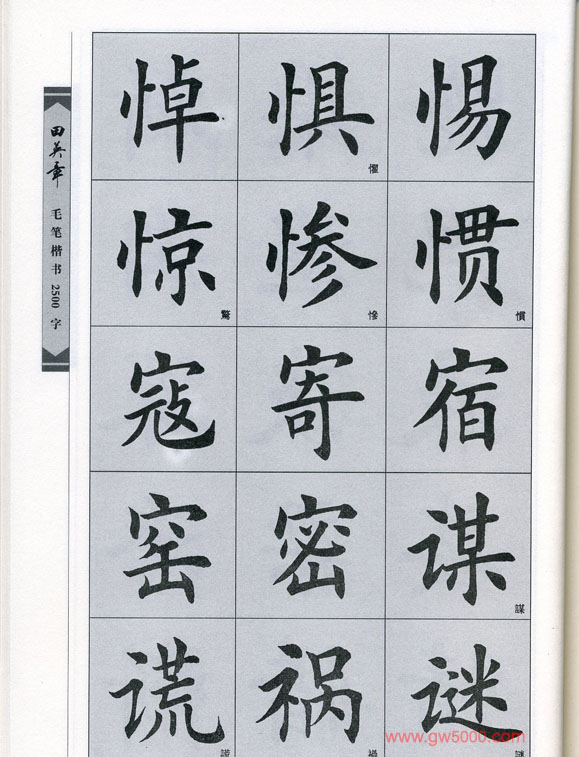 田英章
毛笔楷书2500字
悼 惧 懼 惕
惊 驚 惨 慘 惯 慣
寇 寄 宿
窑 密 谋 謀
谎 祸 谜
www.gw5000.com